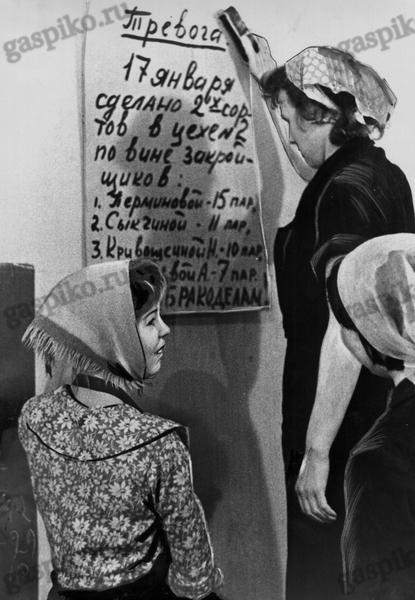 Тревога
17 января
сделано 2ух сор-
тов в цехе №2
по вине закрой-
щиков:
1. Перминовой - 15 пар,
2. Сыкчиной - 11 пар,
3. Кривошеиной Н - 10 пар
вой А. - 7 пар.
БРАКОДЕЛАМ
gaspiko.ru
gaspiko.ru
gaspiko.ru
gaspiko.ru
gaspiko.ru
gaspiko.ru